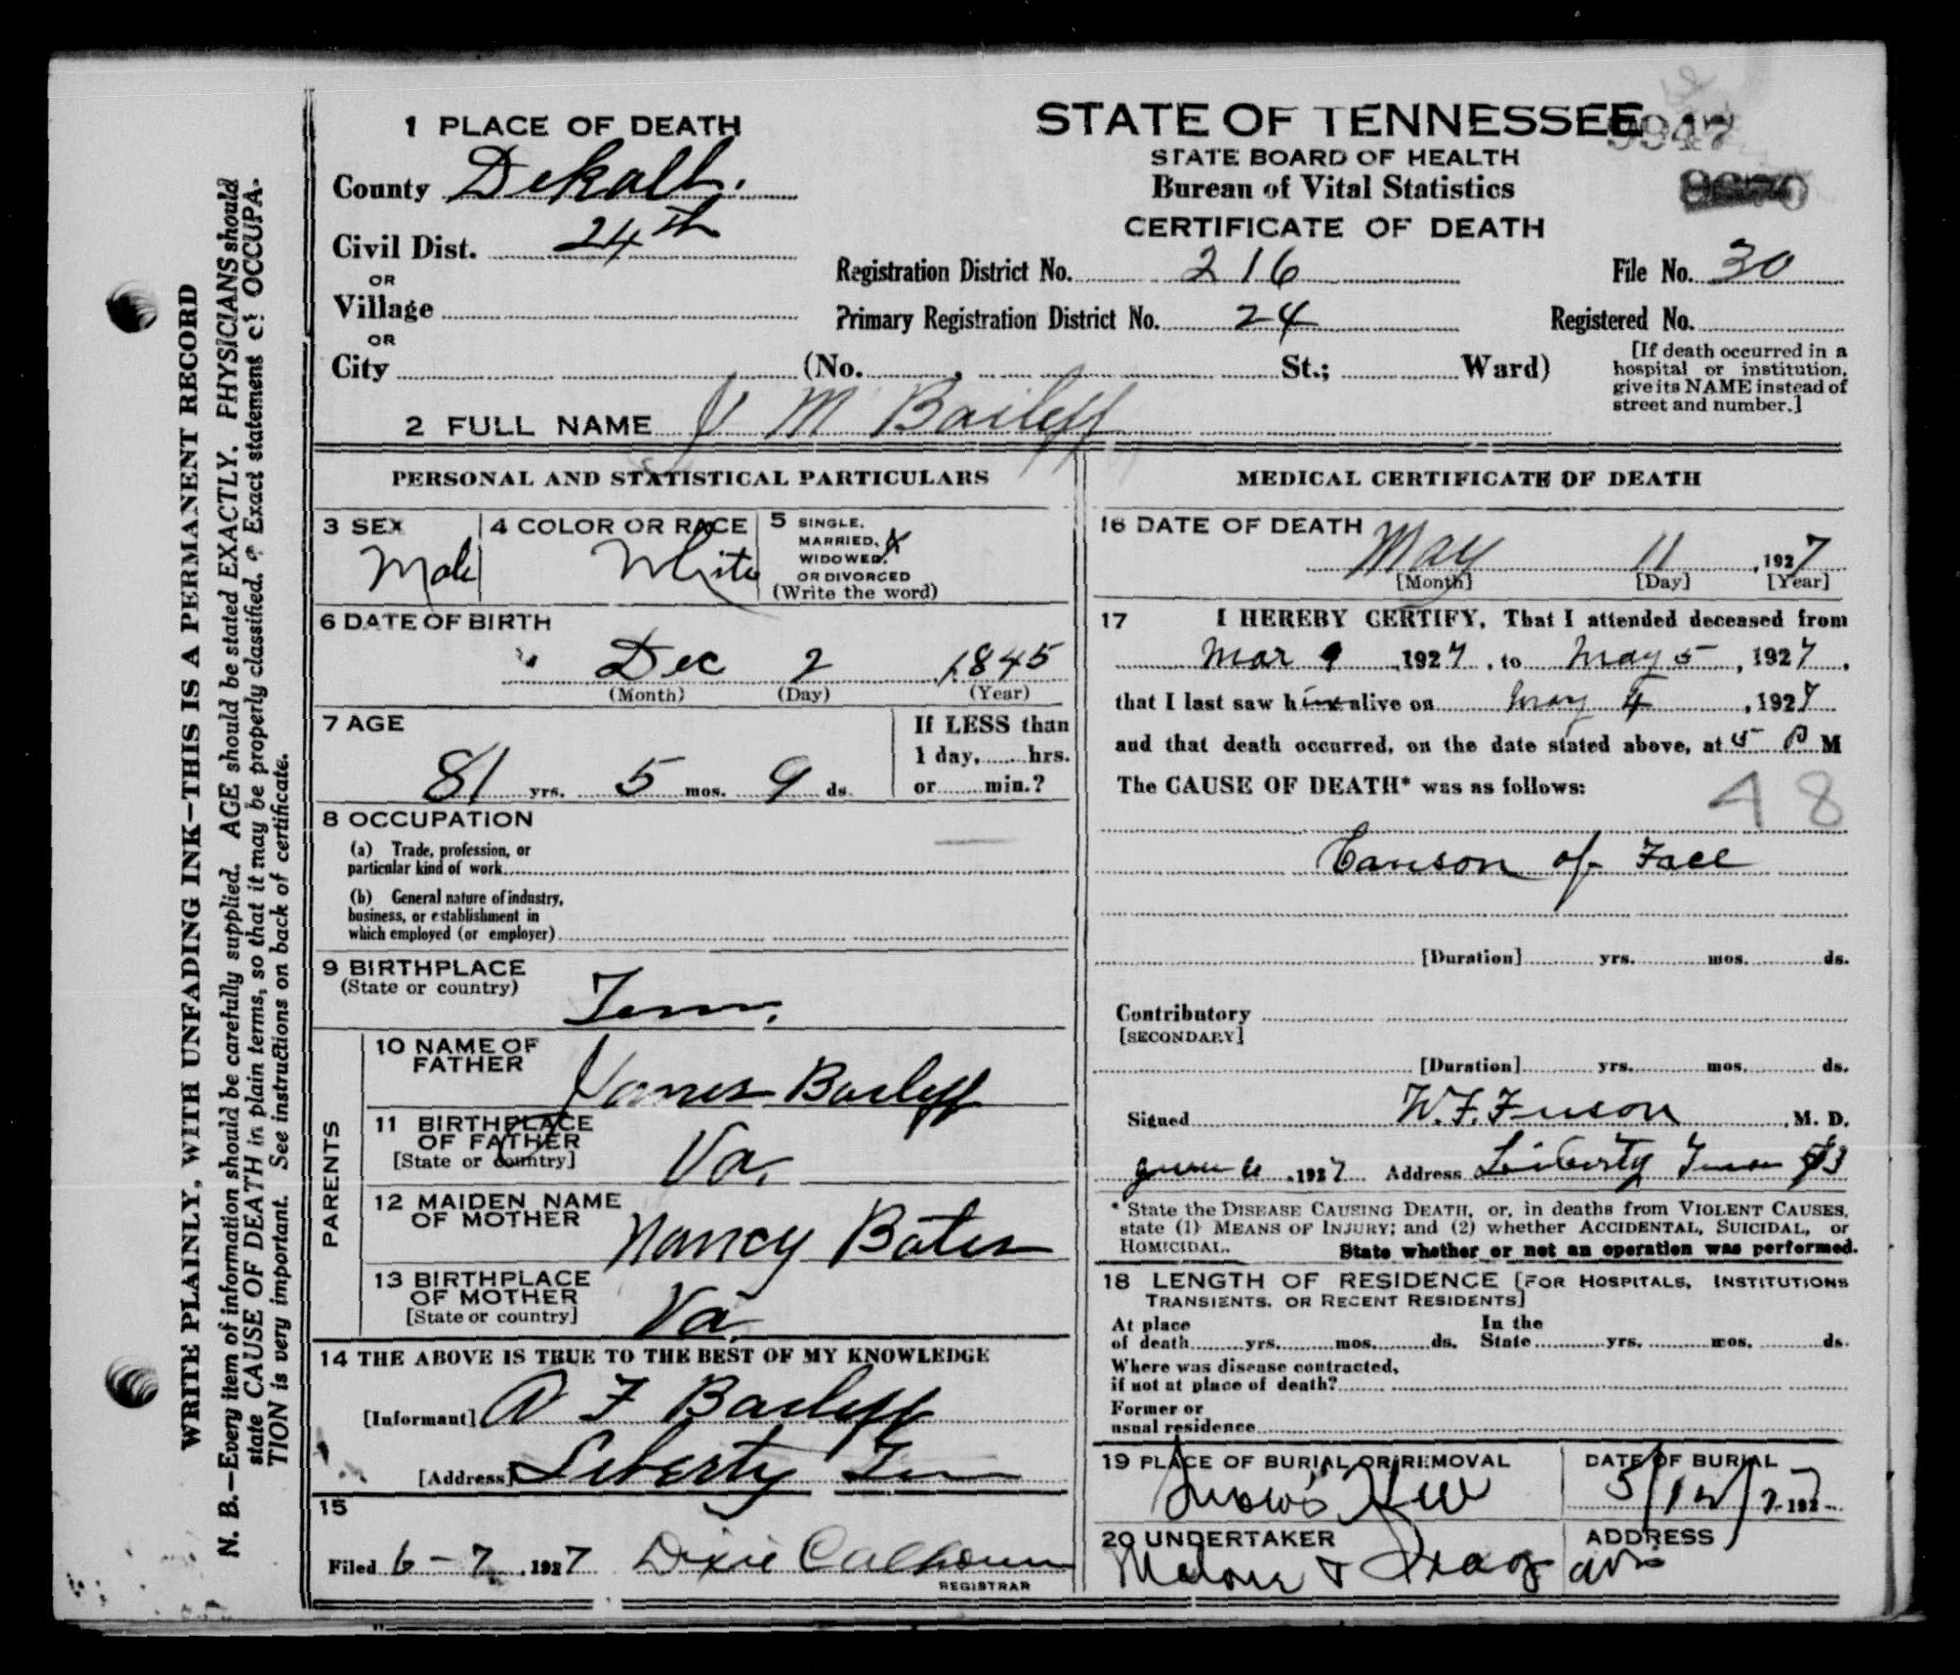 1 PLACE OF DEATH
County Dekalb.
Civil Dist. 24th
OR
Village
OR
City (No. , St.; Ward)
STATE OF TENNESSEE
9947
STATE BOARD OF HEALTH
Bureau of Vital Statistics
CERTIFICATE OF DEATH
Registration District No. 216
File No. 30
Primary Registration District No. 24
Registered No.
[If death occurred in a
hospital or institution,
give its NAME instead of
street and number.]
2 FULL NAME J M Bailiff
PERSONAL AND STATISTICAL PARTICULARS
3 SEX
Male
4 COLOR OR RACE
White
5 SINGLE,
MARRIED, X
WIDOWED,
OR DIVORCED
(Write the word)
6 DATE OF BIRTH
Dec 2 1845
(Month) (Day) (Year)
7 AGE
81 yrs. 5 mos. 9 ds.
If LESS than
1 day, hrs.
or min.?
8 OCCUPATION
(a) Trade, profession, or
particular kind of work
(b) General nature of industry,
business, or establishment in
which employed (or employer)
9 BIRTHPLACE
(State or country)
Tenn.
PARENTS
10 NAME OF
FATHER
James Bailiff
11 BIRTHPLACE
OF FATHER
[State or country]
Va.
12 MAIDEN NAME
OF MOTHER
Nancy Bates
13 BIRTHPLACE
OF MOTHER
[State or country]
Va.
14 THE ABOVE IS TRUE TO THE BEST OF MY KNOWLEDGE
[Informant] F Bailiff
[Address] Liberty Tenn
15
Filed 6-7, 1927 Dixie Calhoun
REGISTRAR
MEDICAL CERTIFICATE OF DEATH
16 DATE OF DEATH
May 11, 1927
[Month] [Day] [Year]
17 I HEREBY CERTIFY, That I attended deceased from
Mar 9, 1927, to May 5, 1927,
that I last saw him alive on May 4, 1927
and that death occurred, on the date stated above, at 5 P M
The CAUSE OF DEATH* was as follows:
48
Canson of Face
[Duration] yrs. mos. ds.
Contributory
[SECONDARY]
[Duration] yrs. mos. ds.
Signed W.F. Fuson, M. D.
June 6, 1927 Address Liberty Tenn
* State the DISEASE CAUSING DEATH, or, in deaths from VIOLENT CAUSES,
state (1) MEANS OF INJURY; and (2) whether ACCIDENTAL, SUICIDAL, or
HOMICIDAL. State whether or not an operation was performed.
18 LENGTH OF RESIDENCE [FOR HOSPITALS, INSTITUTIONS
TRANSIENTS, OR RECENT RESIDENTS]
At place In the
of death yrs. mos. ds. State yrs. mos. ds.
Where was disease contracted,
if not at place of death?
Former or
usual residence
19 PLACE OF BURIAL OR REMOVAL
DATE OF BURIAL
Snow's Hill
5/12/27 192
20 UNDERTAKER
ADDRESS
Malone &
WRITE PLAINLY, WITH UNFADING INK—THIS IS A PERMANENT RECORD
N. B.—Every item of information should be carefully supplied. AGE should be stated EXACTLY. PHYSICIANS should
state CAUSE OF DEATH in plain terms, so that it may be properly classified. Exact statement of OCCUPA-
TION is very important. See instructions on back of certificate.